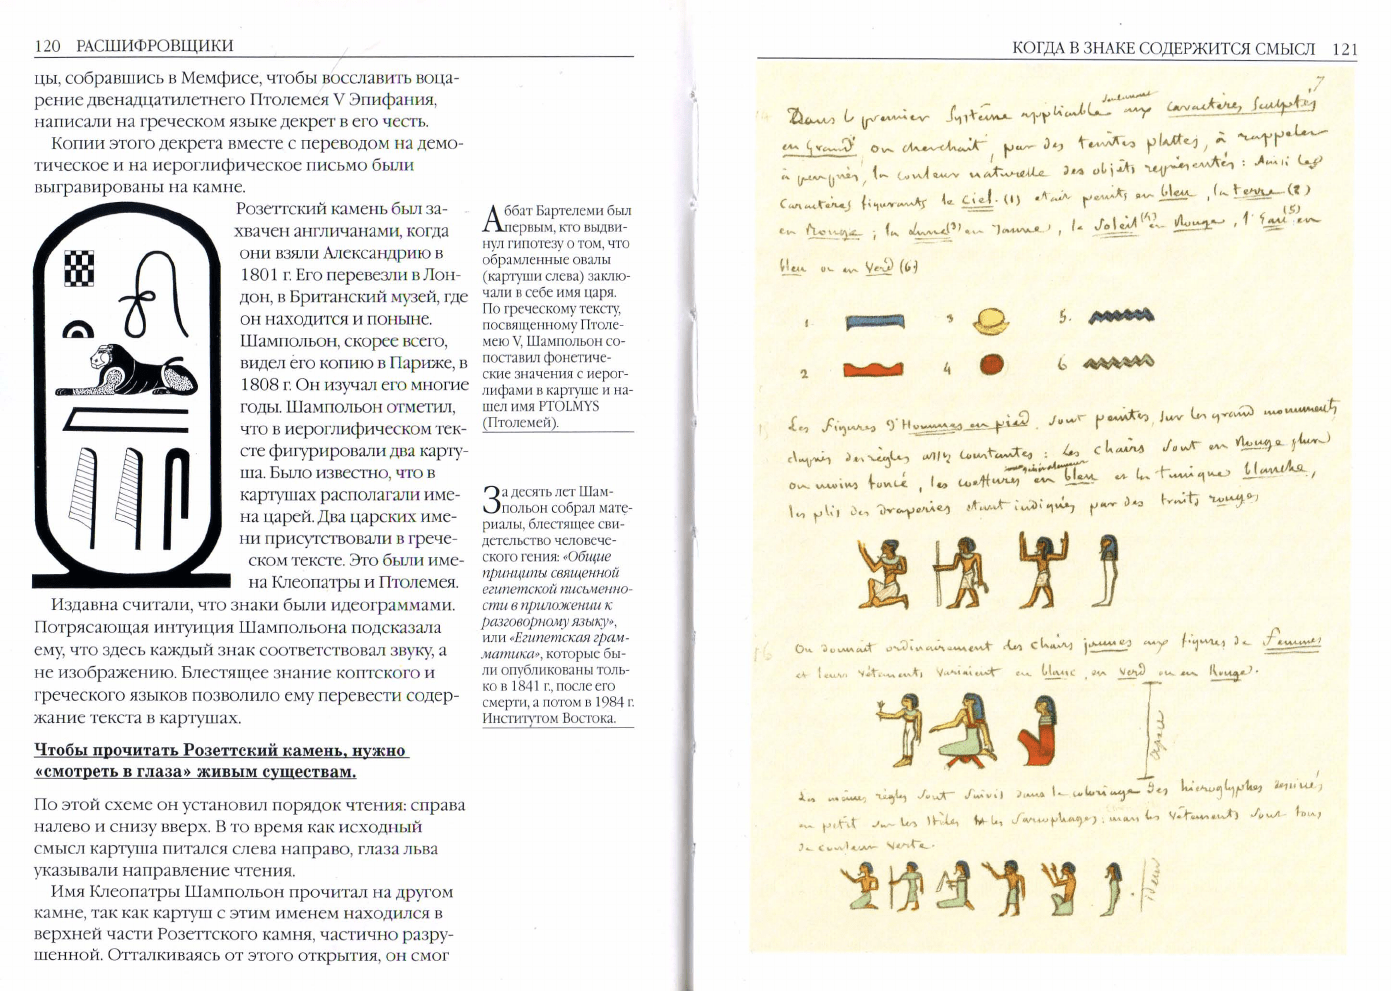 120 РАСШИФРОВЩИКИ
цы, собравшись в Мемфисе, чтобы восславить воца-
рение двенадцатилетнего Птолемея V Эпифания,
написали на греческом языке декрет в его честь.
Копии этого декрета вместе с переводом на демо-
тическое и на иероглифическое письмо были
выгравированы на камне.
Розеттский камень был за-
хвачен англичанами, когда
они взяли Александрию в
1801 г. Его перевезли в Лон-
дон, в Британский музей, где
он находится и поныне.
Шампольон, скорее всего,
видел его копию в Париже, в
1808 г. Он изучал его многие
годы. Шампольон отметил,
что в иероглифическом тек-
сте фигурировали два карту-
ша. Было известно, что в
картушах располагали име-
на царей. Два царских име-
ни присутствовали в грече-
ском тексте. Это были име-
на Клеопатры и Птолемея.
Издавна считали, что знаки были идеограммами.
Потрясающая интуиция Шампольона подсказала
ему, что здесь каждый знак соответствовал звуку, а
не изображению. Блестящее знание коптского и
греческого языков позволило ему перевести содер-
жание текста в картушах.
Чтобы прочитать Розеттский камень, нужно
«смотреть в глаза» живым существам.
По этой схеме он установил порядок чтения: справа
налево и снизу вверх. В то время как исходный
смысл картуша питался слева направо, глаза льва
указывали направление чтения.
Имя Клеопатры Шампольон прочитал на другом
камне, так как картуш с этим именем находился в
верхней части Розеттского камня, частично разру-
шенной. Отталкиваясь от этого открытия, он смог
Аббат Бартелеми был
первым, кто выдви-
нул гипотезу о том, что
обрамленные овалы
(картуши слева) заклю-
чали в себе имя царя.
По греческому тексту,
посвященному Птоле-
мею V, Шампольон со-
поставил фонетиче-
ские значения с иерог-
лифами в картуше и на-
шел имя PTOLMYS
(Птолемей).
За десять лет Шам-
польон собрал мате-
риалы, блестящее сви-
детельство человече-
ского гения: «Общие
принципы священной
египетской письменно-
сти в приложении к
разговорному языку»,
или «Египетская грам-
матика», которые бы-
ли опубликованы толь-
ко в 1841 г., после его
смерти, а потом в 1984 г.
Институтом Востока.
КОГДА В ЗНАКЕ СОДЕРЖИТСЯ СМЫСЛ 121
7
Dans le premier Système applicable seulement aux caractères Sculptés
en Grand, on cherchait, par des teintes plattes, à rappeler
à peu près, la couleur naturelle des objets représentés: Ainsi les
Caractères figurants le Ciel (1) était peints en bleu, la terre (2)
en Rouge; la Lune (3) en Jaune, le Soleil (4) en Rouge, l'Eau (5) en
bleu ou en Verd (6)
1. 3 5.
2 4 6
Les figures d'Hommes en pied sont peintes, sur les grand monuments
d'après des règles assez constantes: les chairs sont en Rouge plus
ou moins foncé, les coeffures en bleu et la tunique blanche,
les plis des draperies étant indiqués par des traits rouges
On donnait ordinairement des chairs jaunes aux figures de Femmes
et leurs vêtements variaient en blanc, en verd ou en Rouge.
Les mêmes règles sont suivis dans le coloriage des hieroglyphes dessinés
en petit sur les Stèles et les Sarcophages; mais les vêtements sont tous
de couleur verte.